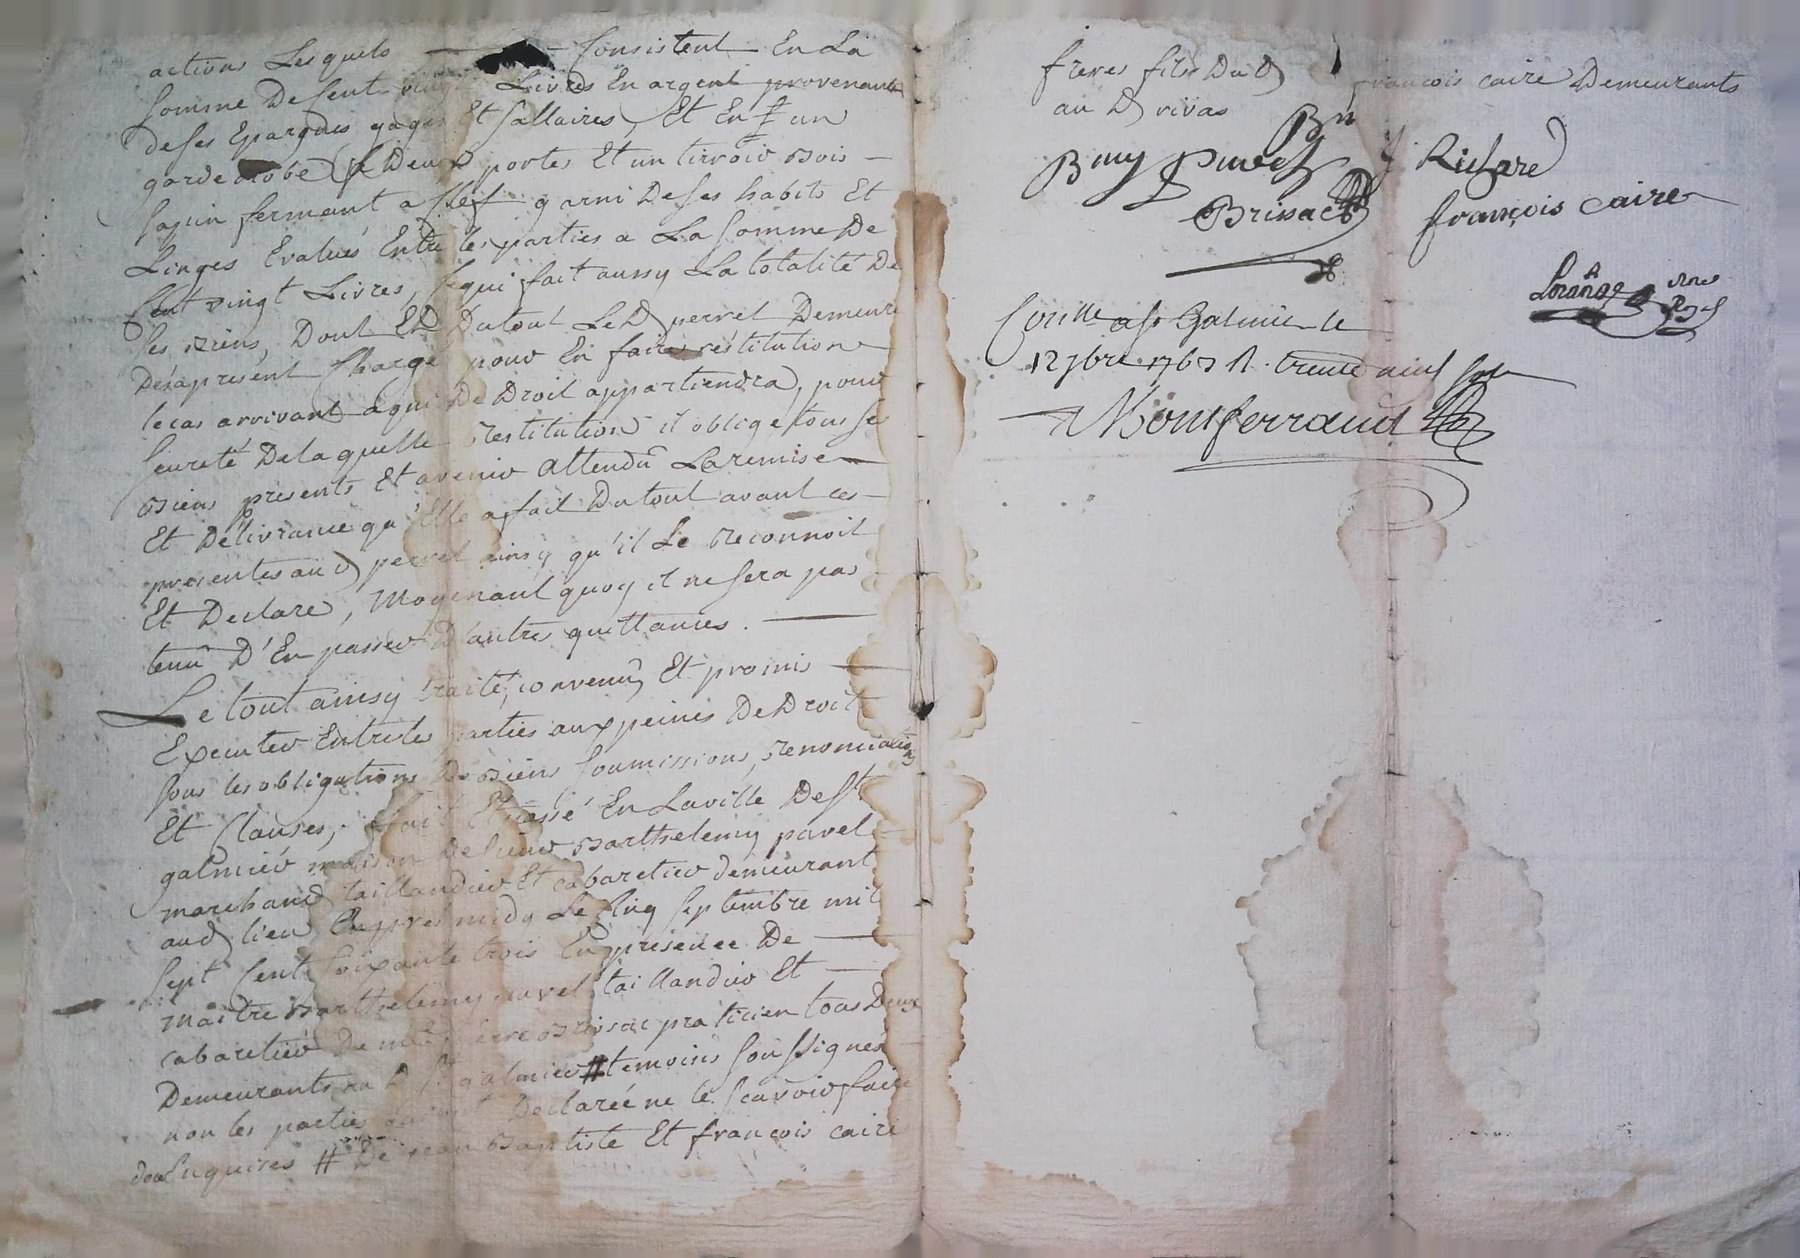 actions Lesquels — Consistent En La
somme De Cent vingt Livres En argent provenante
de ses Epargnes gages Et sallaires, Et En un
garderobe a Deux portes Et un tirroir Bois —
sapin fermant a Clef garni De ses habits Et
Linges Evalués Entre les parties a La somme De
Cent vingt Livres, ce qui fait aussy La totalité De
ses Biens, Dont Et Du tout Le D perret Demeure
Desapresent Chargé pour En faire réstitution
le cas arrivant a qui De Droit appartiendra, pour
seureté De laquelle Restitution il oblige tous ses
Biens presents Et avenir attendû La remise —
Et Délivrance qu'Elle a fait Du tout avant ces —
presentes aud perret ainsy qu'il Le Reconnoit
Et Declare, Moyenant quoy il ne sera pas
tenû D'En passer D'autres quittances. —
Le tout ainsy traité, convenû, Et promis —
Executer Entre les parties aux peines De Droit
sous les obligations De Biens soumissions, Renonciations
Et Clauses, fait Et passé En La ville De St
galmier maison De sieur Barthelemy pavel —
marchand taillandier Et cabaretier demeurant
aud lieu Enapres midy Le Cinq septembre mil
sept Cent soixante trois En présence De —
maitre Barthelemy pavel taillandier Et —
cabaretier De me pierre Brisac praticien tous Deux
Demeurants aud St galmier # temoins soussignés
non les parties Declarée ne le scavoir faire
Enquises # De jean Baptiste Et françois caire
freres fils Dud françois caire Demeurants
au D rivas
Richard
françois caire
Brisac
Con.lle a St Galmier le
12 7bre 1763 R. trente neuf sols
Montferrand